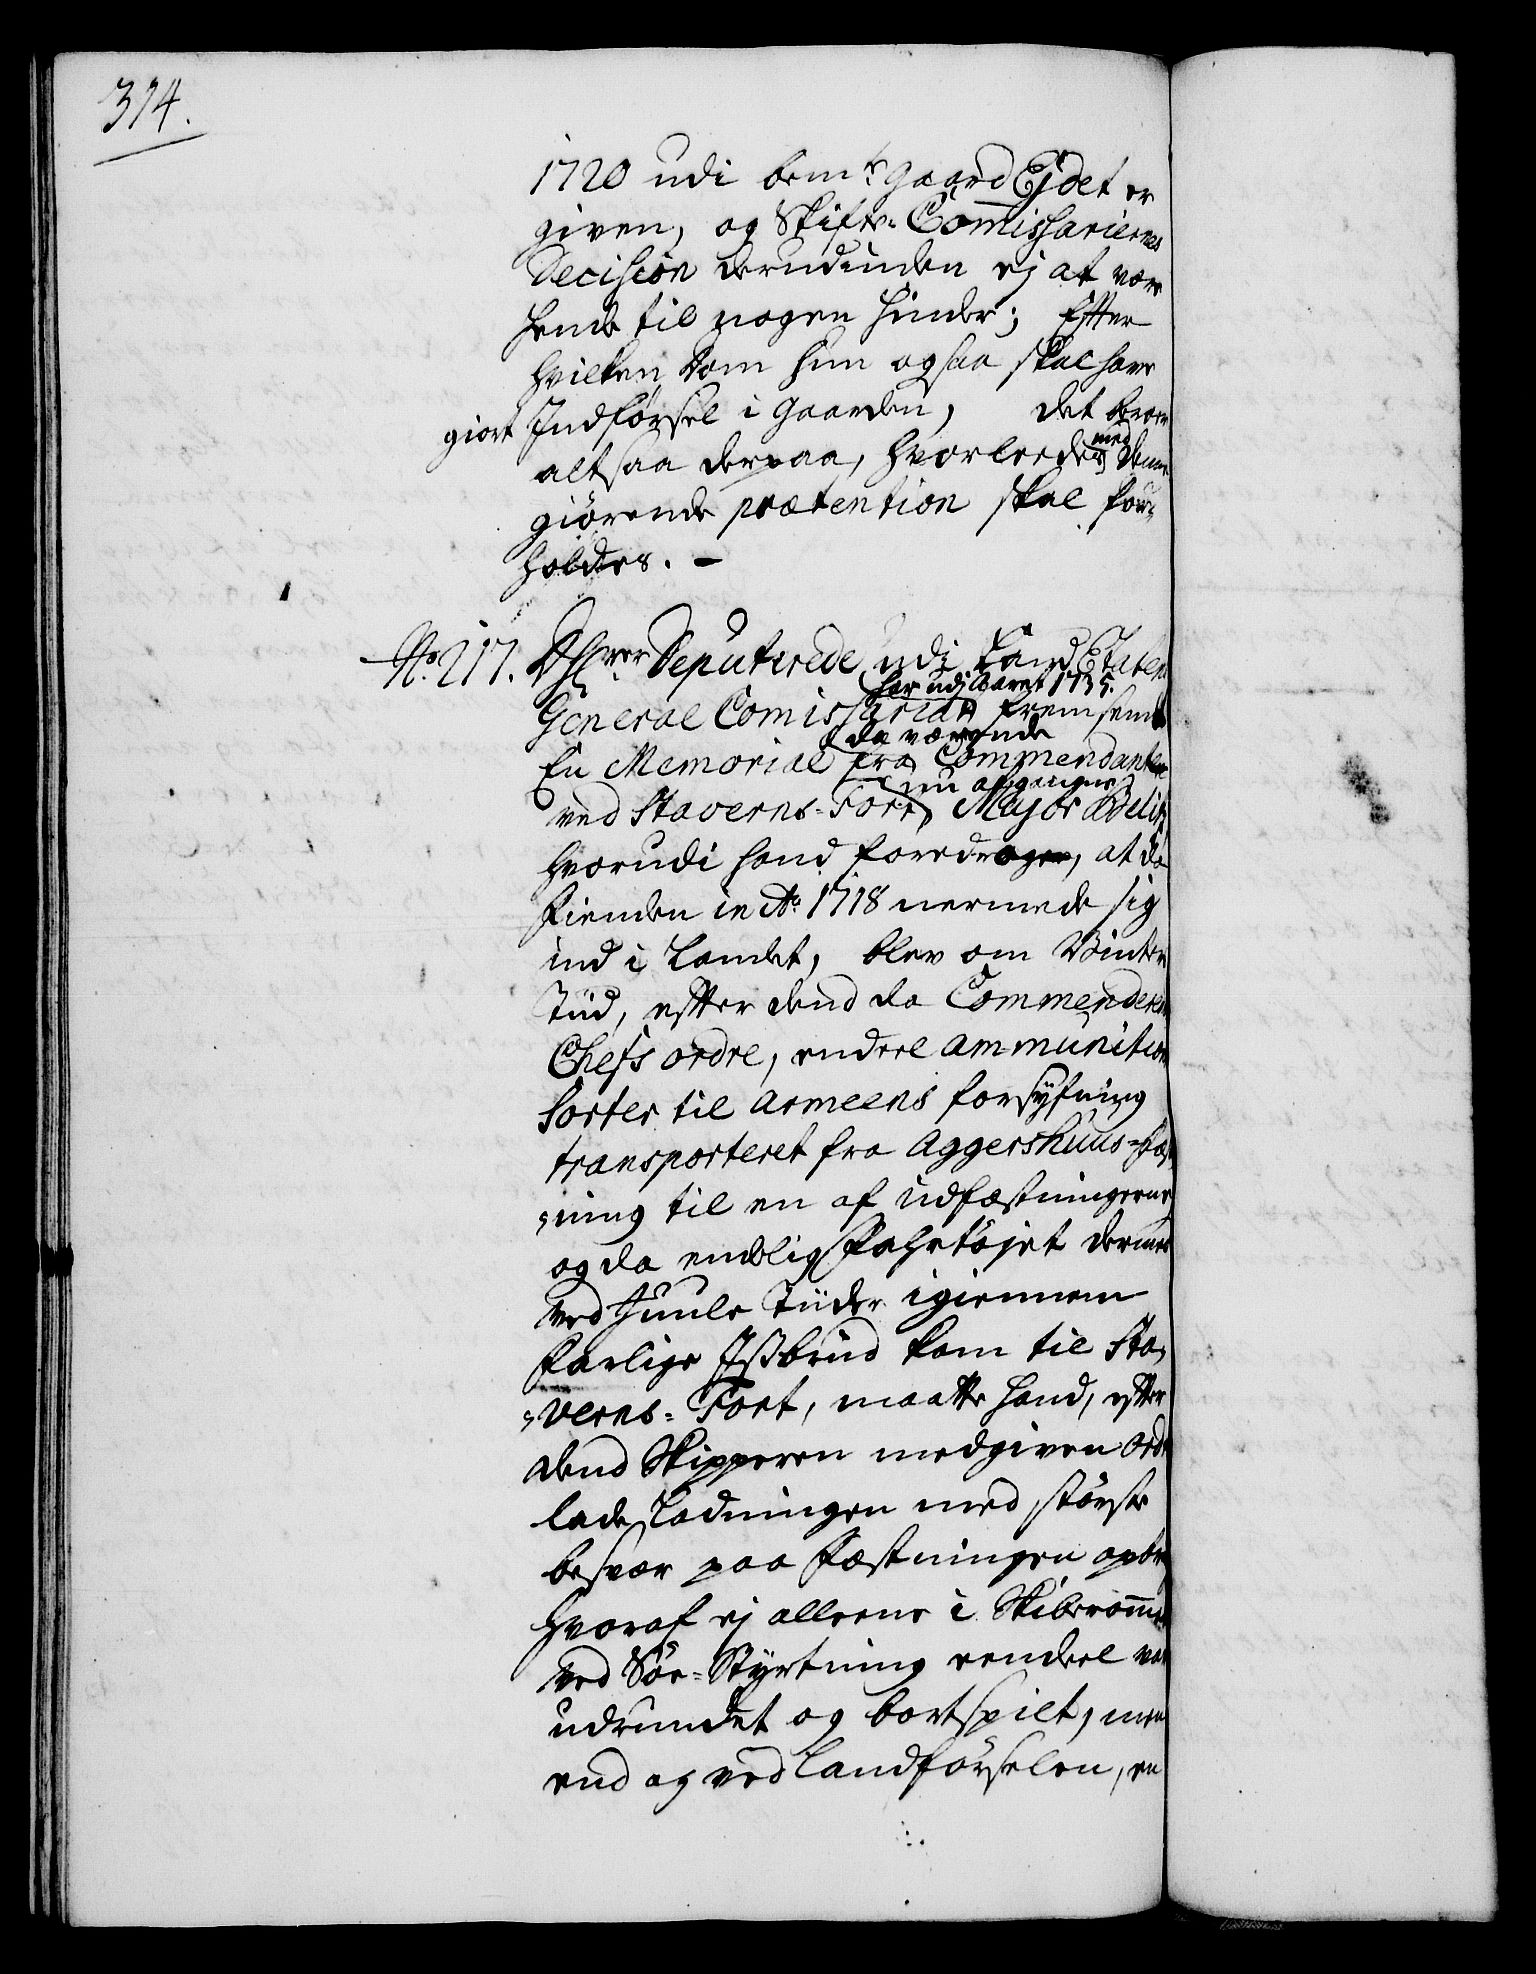 314.
1720 udi bem.te Gaard Ejdet er
given, og Skifte-Commissariernes
Decision derudinden ej at være
hende til nogen hinder; Efter
hvilken Dom hun og saa skal have
giort Indførsel i Gaarden, det beroer
altsaa derpaa, hvorleedes med denne
giørende prætention skal for-
holdes. -
No. 217. DHrer Deputerede udi Land Etatens
General Comissariat har udj Aaret 1735. fremsendt
En Memorial fra da værende Commendanten
ved Staverns-Fort, nu afgangne Major
hvorudi hand foredrager, at da
Fienden in Ao. 1718 nermede sig
ind i Landet, blev om Vinter
Tiid, efter dend da Commenderen
Chefs ordre, endeel ammunition
sorter til armeens forsyfning
transporteret fra Aggershuus-Fæst
-ning til en af udfæstningerne
og da endelig Fahrtøjet dermed
ved Juule Tiider igiennem
farlige Jßbrud kom til Sta-
-verns-Fort, maatte hand, efter
dend Skipperen medgiven Ordre
lade Ladningen med største
besvær paa Fæstningen opbr
hvoraf ej alleene i Skiberommet
ved Søe-Styrtning eendeel var
udrundet og bortspilt, men
end og ved Landførselen, en